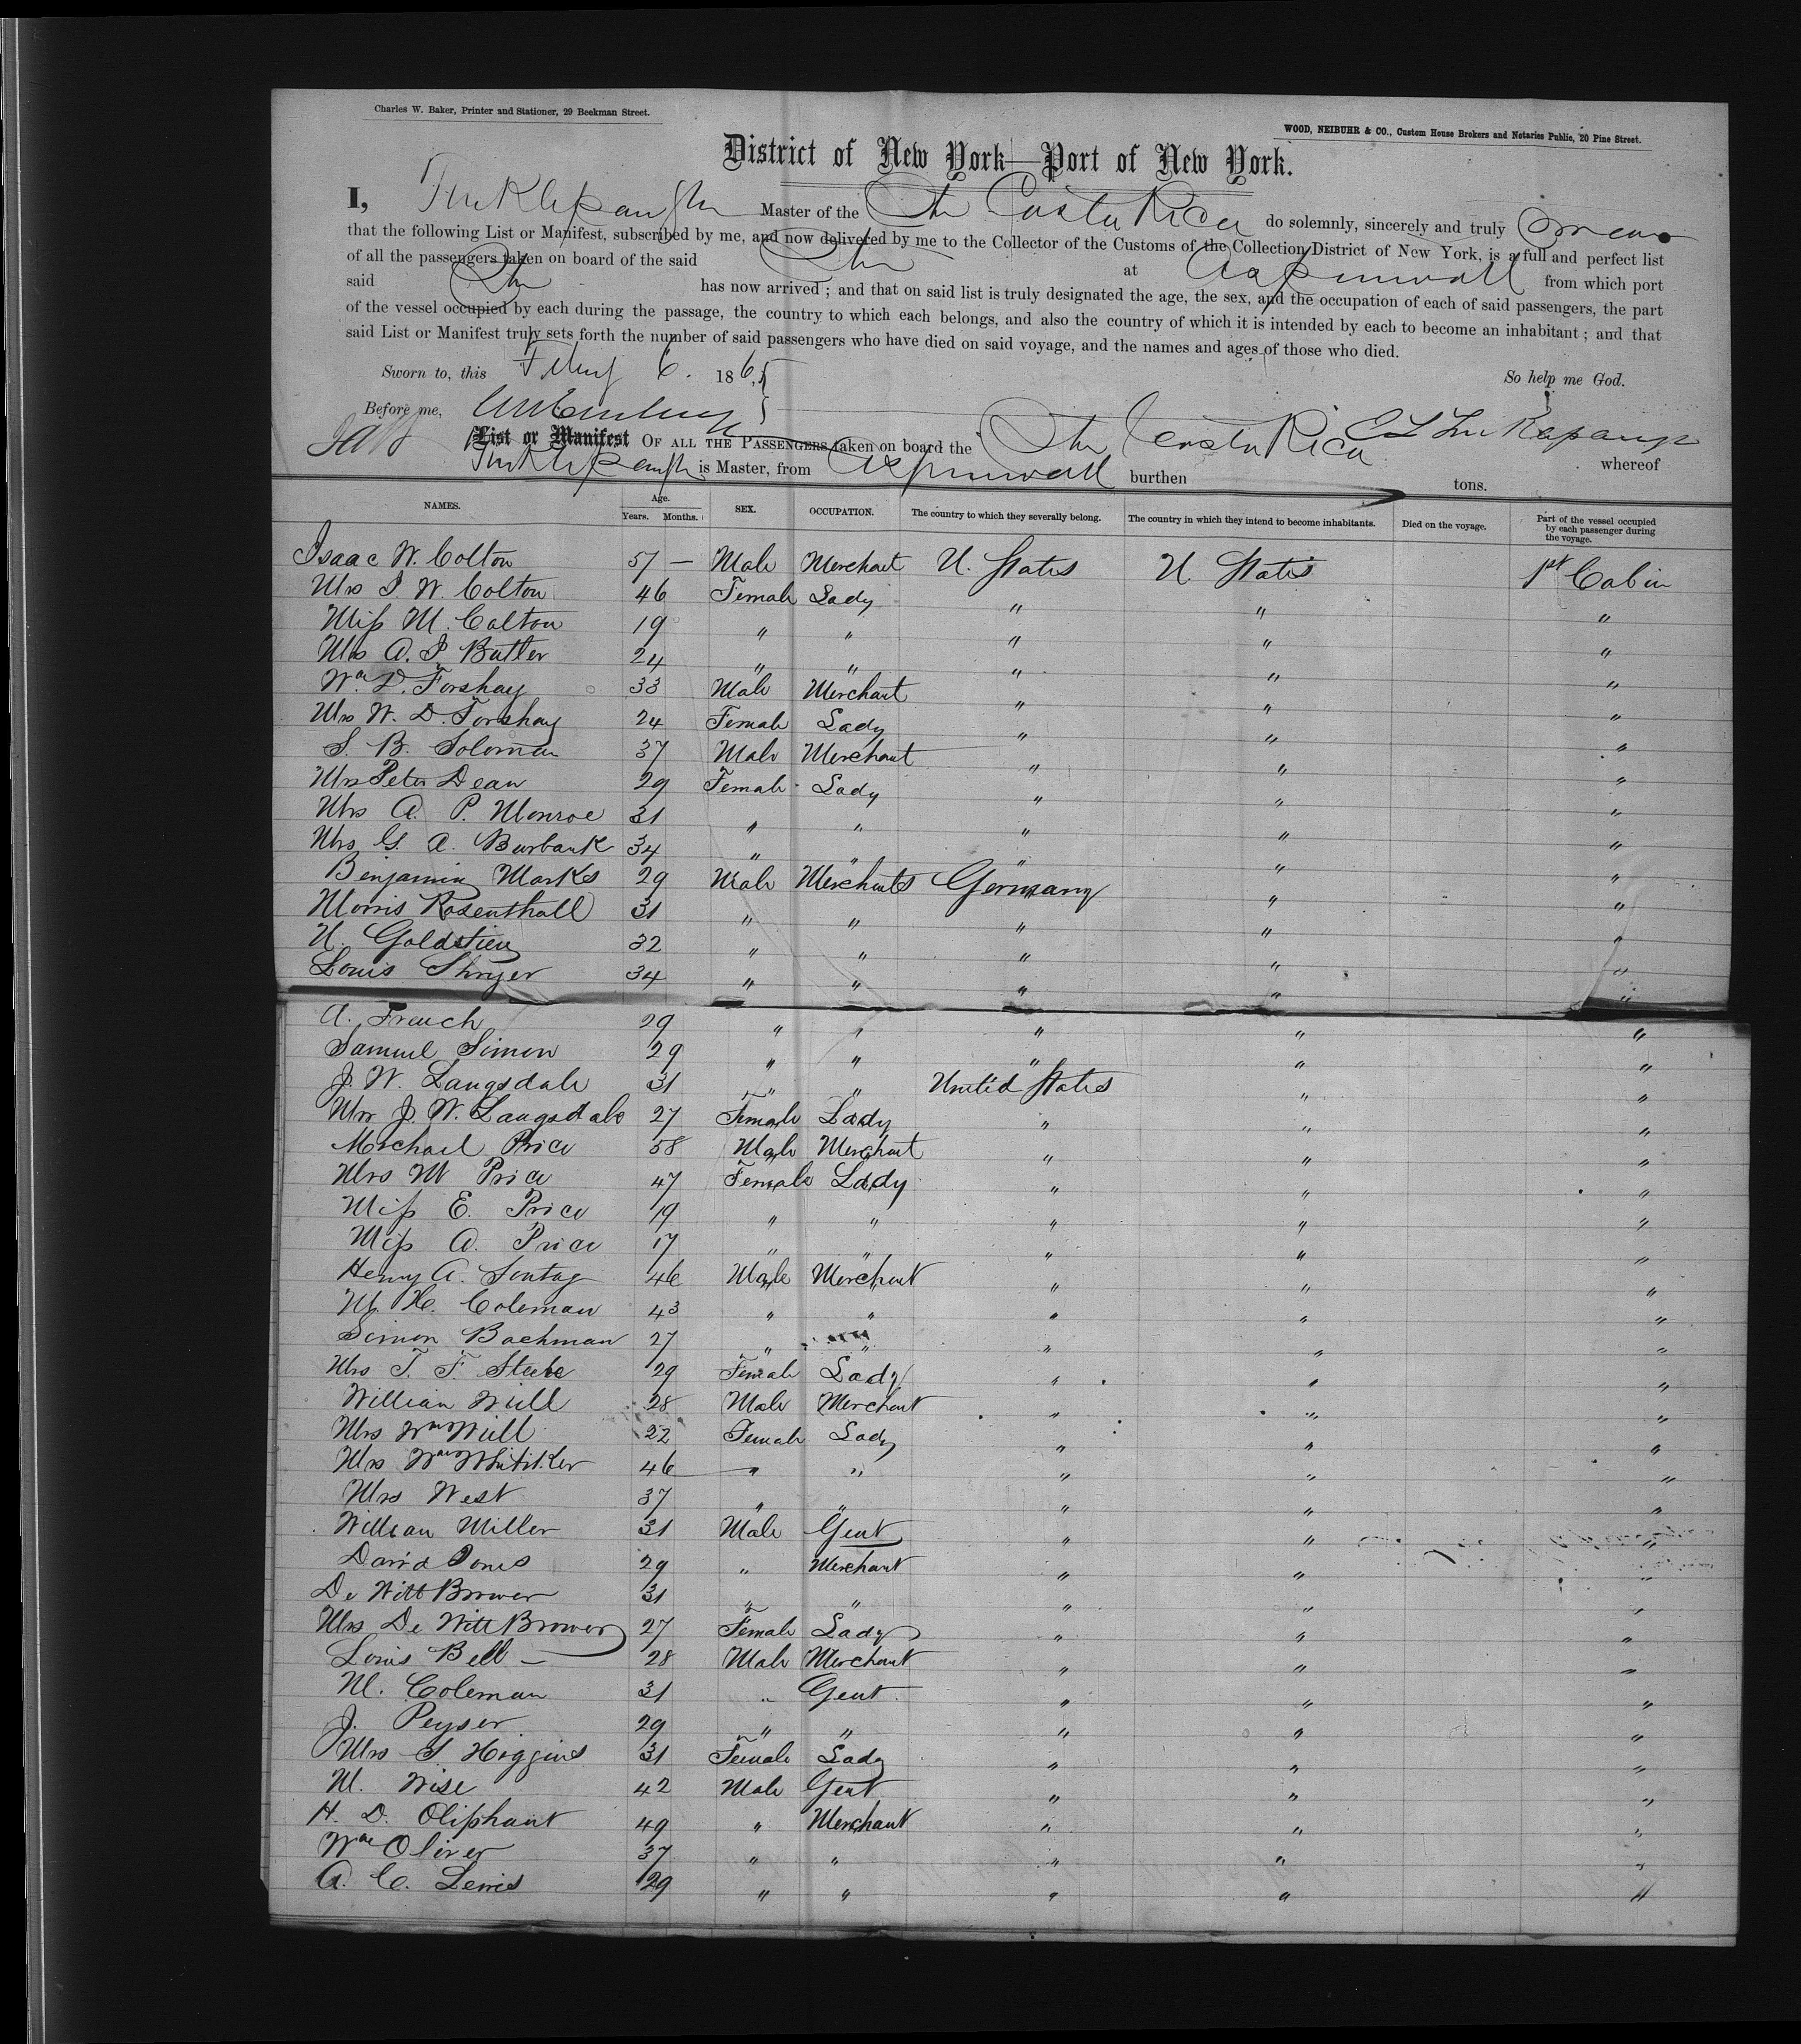 Charles W. Baker, Printer and Stationer, 29 Beekman Street.
WOOD, NEIBUHR & CO., Custom House Brokers and Notaries Public, 20 Pine Street.
District of New York—Port of New York.
I, Tinklepaugh Master of the Str Costa Rica do solemnly, sincerely and truly swear
that the following List or Manifest, subscribed by me, and now delivered by me to the Collector of the Customs of the Collection District of New York, is a full and perfect list
of all the passengers taken on board of the said Str at Aspinwall from which port
said Str has now arrived; and that on said list is truly designated the age, the sex, and the occupation of each of said passengers, the part
of the vessel occupied by each during the passage, the country to which each belongs, and also the country of which it is intended by each to become an inhabitant; and that
said List or Manifest truly sets forth the number of said passengers who have died on said voyage, and the names and ages of those who died.
Sworn to, this Feby 6. 1865 So help me God.
Before me,
List or Manifest OF ALL THE PASSENGERS taken on board the Str Costa Rica whereof
Tinklepaugh is Master, from Aspinwall burthen tons.
NAMES. Age. Years. Months. SEX. OCCUPATION. The country to which they severally belong. The country in which they intend to become inhabitants. Died on the voyage. Part of the vessel occupied by each passenger during the voyage.
Isaac W. Colton 57 — Male Merchant U. States U. States 1st Cabin
Mrs I W. Colton 46 Female Lady " " "
Miss M. Colton 19 " " " " "
Mrs A. I Butler 24 " " " " "
Wm D. Forshay 33 Male Merchant " " "
Mrs W. D. Forshay 24 Female Lady " " "
S. B. Soloman 37 Male Merchant " " "
Mrs Peter Dean 29 Female Lady " " "
Mrs A. P. Monroe 31 " " " " "
Mrs G. A. Burbank 34 " " " " "
Benjamin Marks 29 Male Merchants Germany " "
Morris Rosenthall 31 " " " " "
U. Goldstien 32 " " " " "
Louis Shryer 34 " " " " "
A. French 29 " " " " "
Samuel Simon 29 " " " " "
J. W. Langsdale 31 " " United States " "
Mrs J. W. Langsdale 27 Female Lady " " "
Michael Price 58 Male Merchant " " "
Mrs M Price 47 Female Lady " " "
Miss E. Price 19 " " " " "
Miss A. Price 17 " " " " "
Henry A. Sontag 46 Male Merchant " " "
M. H. Coleman 43 " " " " "
Simon Bachman 27 " " " " "
Mrs T. F. Steele 29 Female Lady " " "
William Will 28 Male Merchant " " "
Mrs Wm Will 22 Female Lady " " "
Mrs Wm Whitiker 46 " " " " "
Mrs West 37 " " " " "
William Miller 31 Male Gent " " "
David Jones 29 " Merchant " " "
De Witt Brower 31 " " " " "
Mrs De Witt Brower 27 Female Lady " " "
Louis Bell — 28 Male Merchant " " "
M. Coleman 31 " Gent " " "
J. Peyser 29 " " " " "
Mrs S Higgins 31 Female Lady " " "
M. Wise 42 Male Gent " " "
H. D. Oliphant 49 " Merchant " " "
Wm Oliver 37 " " " " "
A. C. Lewis 29 " " " " "